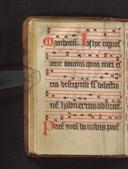 In hoc cognos
cent omnes quia mei es
tis discipuli si dilectio
nē habueritis ad invicē
Pacē meā do vobis pacē